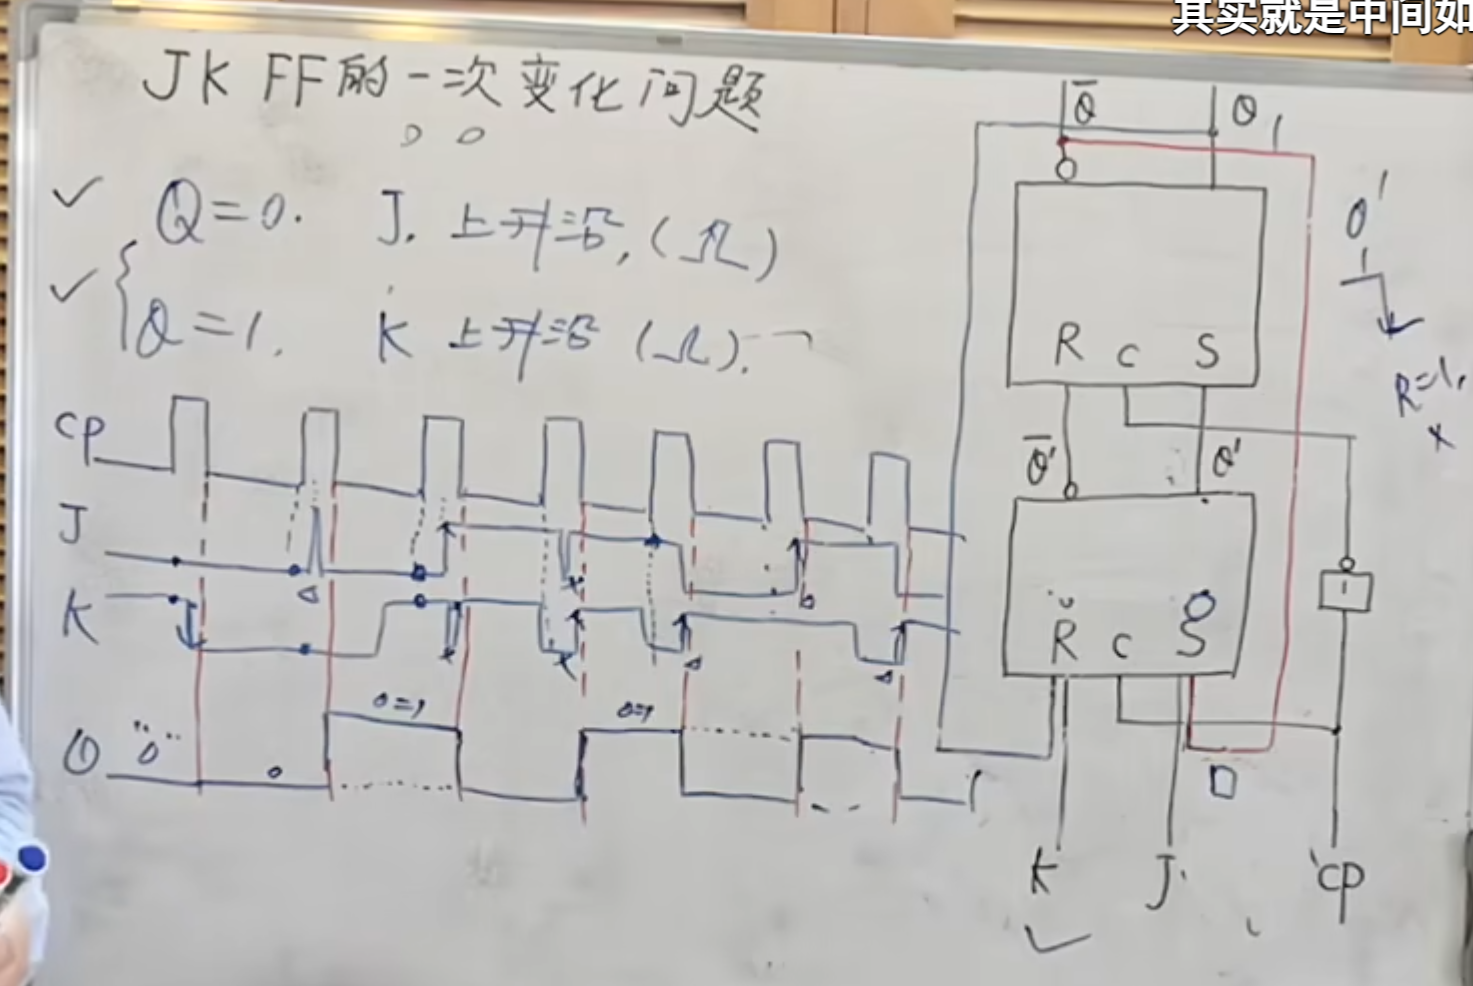 其实就是中间如
JK FF的一次变化问题
Q=0. J. 上升沿,( )
Q=1. K 上升沿 ( ).
CP
J
K
Q "0" 0 Q=1 Q=1
Q̄ Q 1
Q'
1
R=1,
×
R C S
Q̄' Q'
1
R C S
0
K J CP